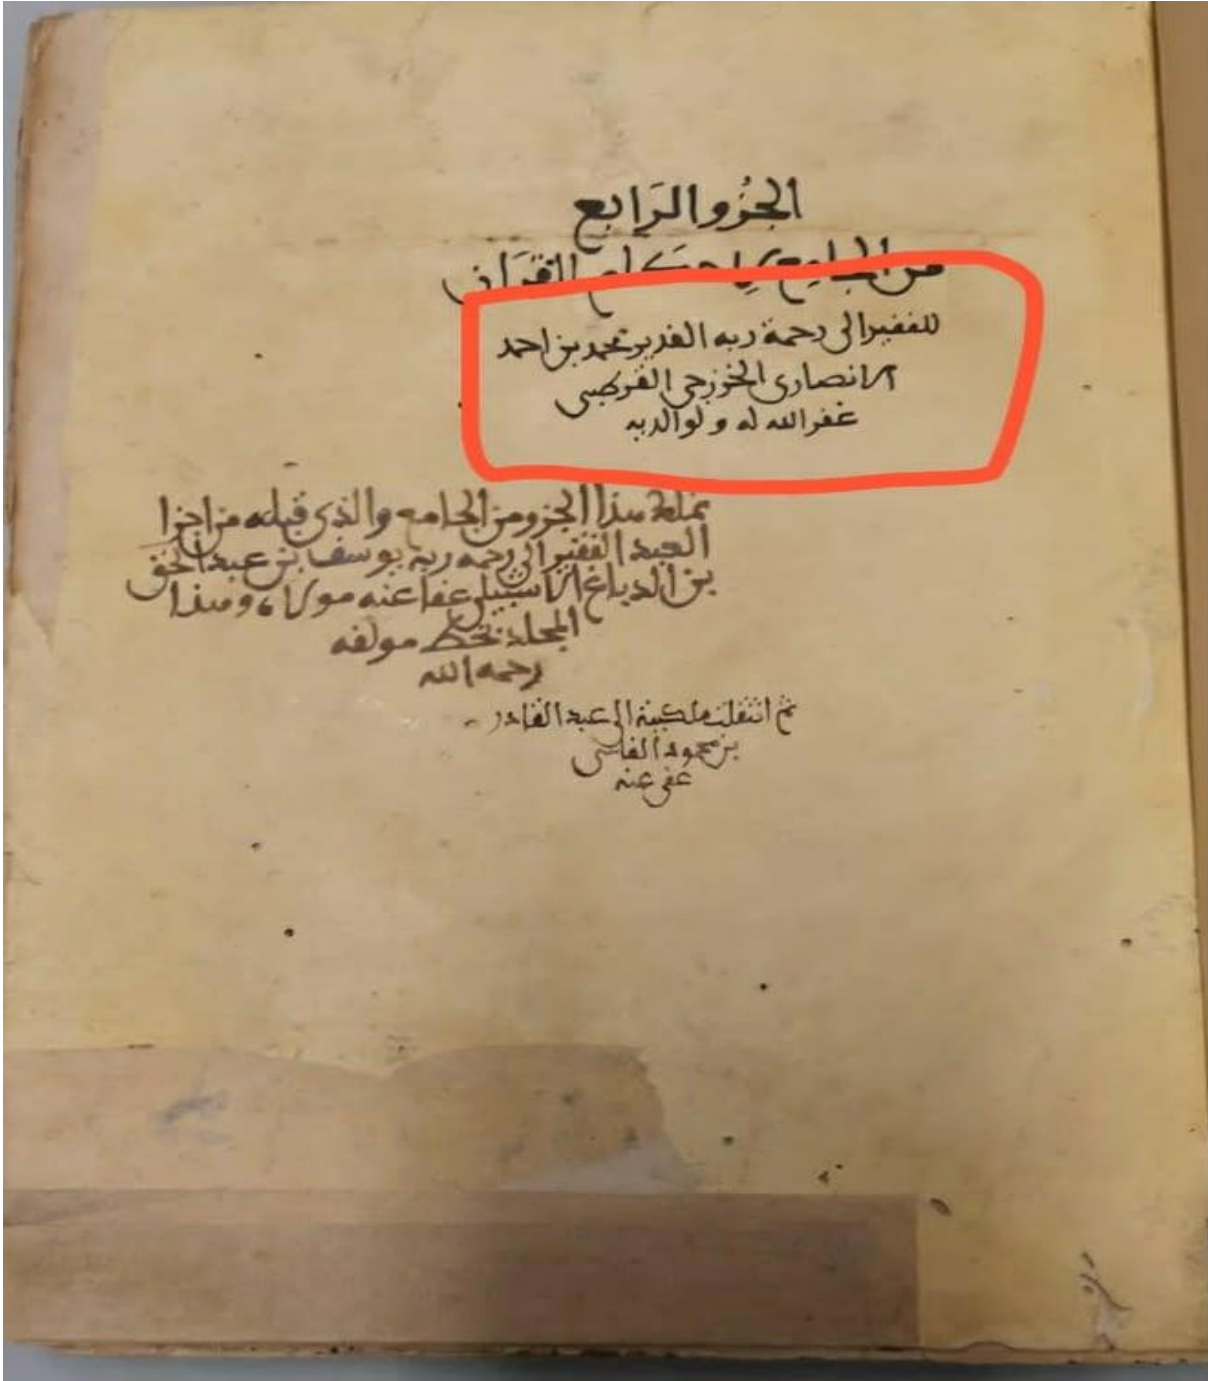 الجُزُو الرَابع
من الجامع لِاحكام القرَان
للفقير الى رحمة ربه القدير محمد بن احمد
الانصارى الخزرجى القرطبى
غفر الله له و لوالديه
تملك هذا الجزو من الجامع والذى قبله من اجزا
العبد الفقير الى رحمه ربه يوسف بن عبد الحق
بن الدباغ الاشبيلى عفا عنه مولاه وهذا
المجلد بخط مولفه
رحمه الله
ثم انتقلت ملكيته الى عبد القادر
بن محمود الفاسى
عفى عنه